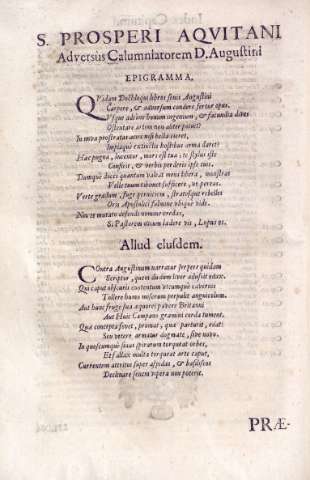 S. PROSPERI AQVITANI
Adversùs Calumniatorem D. Augustini
EPIGRAMMA.
QVidam Doctiloqui libros senis Augustini
Carpere, & adversum condere fertur opus.
Usque adeone bonum ingenium, & facundia dives
Ostentare artem non aliter potuit?
In nova prostratas nisi bella cieret,
Impiaque extinctis hostibus arma daret?
Hac pugna, incentor, mors est tua: te stylus iste
Conficit, & verbis perderis ipse tuis.
Dumque doces quantum valeat mens libera, monstras
Velle tuum tibimet sufficere, ut pereas.
Verte gradum, fuge perniciem, stratosque rebelles
Ora Apostolici fulmine ubique vide.
Nec te mutato defendi nomine credas,
Si Pastorem ovium laedere vis, Lupus es.
Aliud eiusdem.
COntra Augustinum narratur serpere quidam
Scriptor, quem dudum livor adussit edax.
Qui caput obscuris contentum utcumque cavernis
Tollere humo miserum perpulit anguiculum.
Aut hunc fruge sua aequorei pavere Britanni
Aut Huic Campano gramine corda tument.
Quae concepta fovet, promat, quae parturit, edat:
Seu vetere armatur dogmate, sive novo.
In quoscumque sinus spirarum torqueat orbes,
Et fallax multa torqueat arte caput,
Currentem attritus super aspidas, & basiliscos
Declinare senem vipera non poterit.
PRÆ-